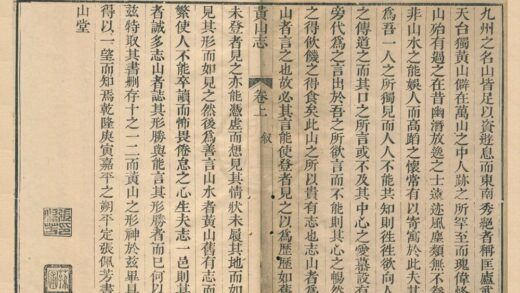 九州之名山皆足以資遊息而東南秀絕者稱匡廬武
天台獨黃山僻在萬山之中人跡之所罕至而瑰偉
山殆有過之在昔幽潛放逸之士遠迹風塵類無不
非山水之能娛人而高蹈之懷常有以寄寓於此夫
為吾一人之所獨見而人人不能共知則徃徃欲向人
之傳道之而其口之所言或不及其中心之愛慕設有
旁代為之言出於吾之所欲言而不能則其心之暢然
之得飲饑之得食矣此山之所以貴有志也志山者為
山者言之也故必其言能使登者見之以為歷歷如
黃山志 卷上 敘
未登者見之亦能憑虛而想見其情狀未履其地而如
見其形而如見之然後為善言山水者黃山舊有志而
繁使人不能卒讀而怖畏倦怠之心生夫志一邑則其
者誠多志山者誌其形勝與能言其形勝者而已何以
茲特取其書刪存十之一二而黃山之形神於茲畢具
得以一望而知焉乾隆庚寅嘉平之朔平定張佩芳書
山堂